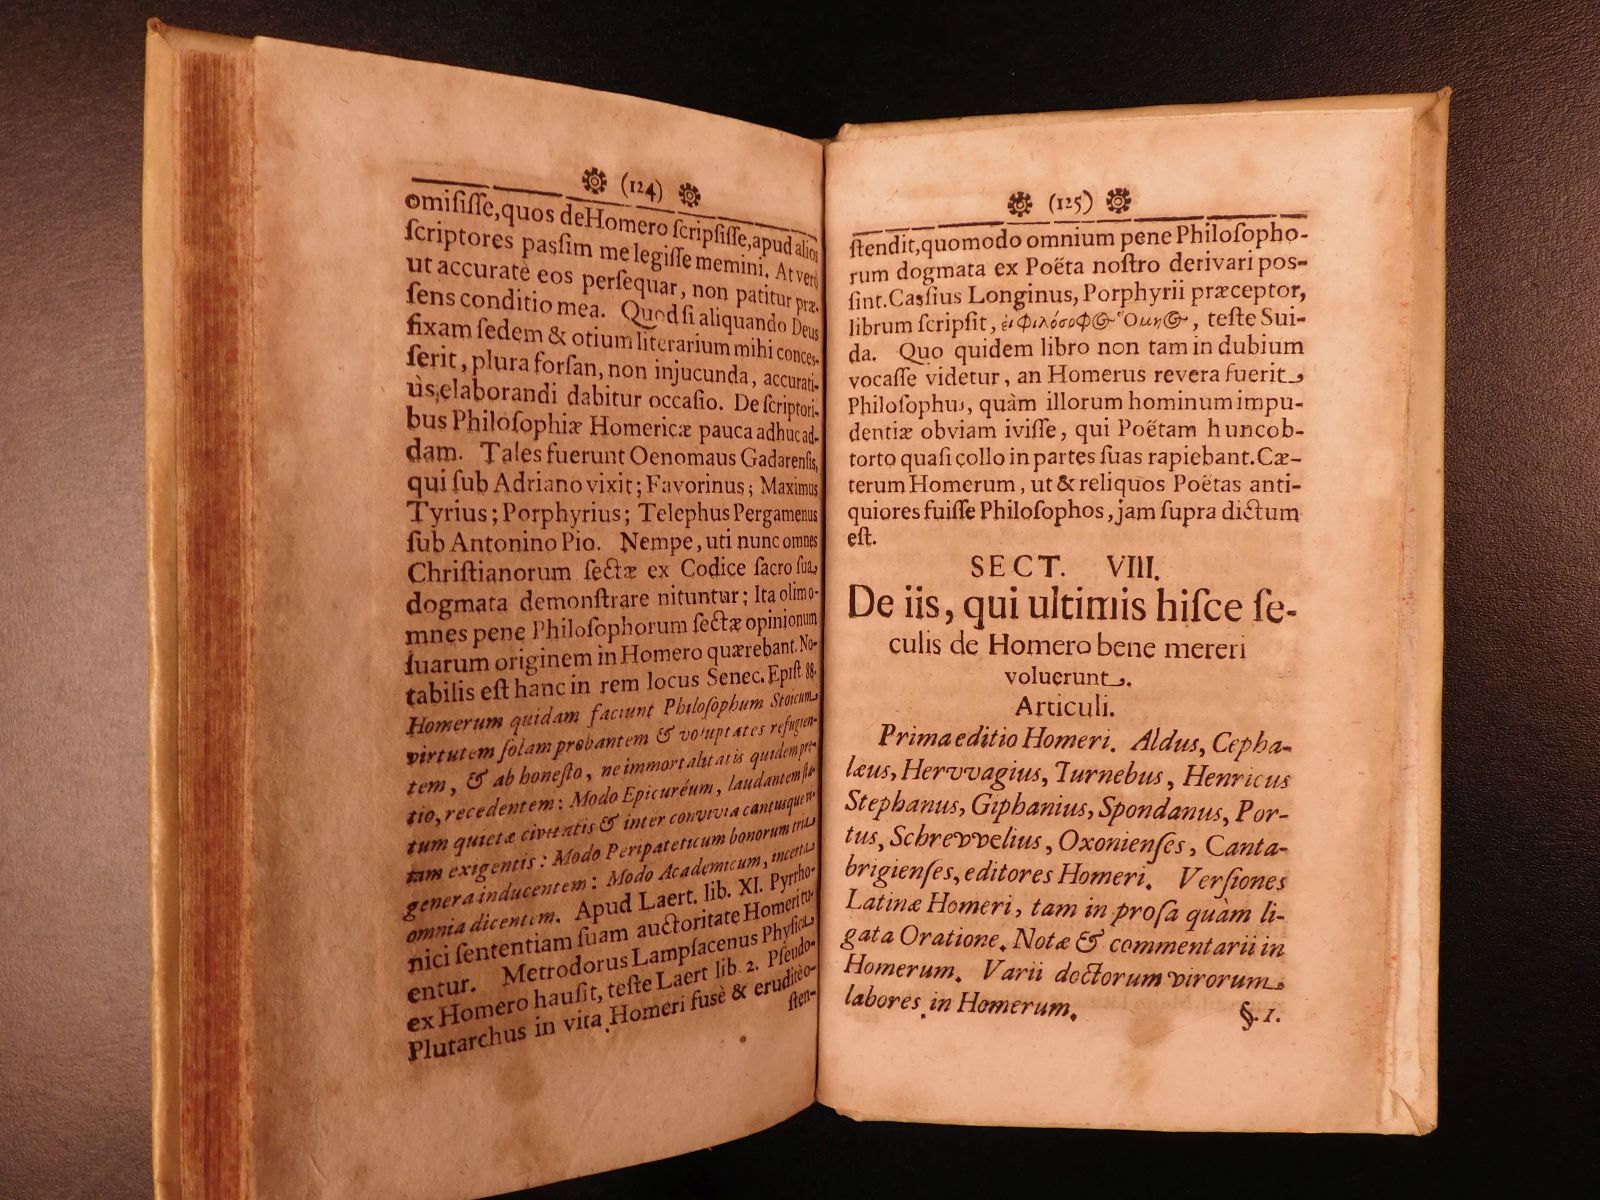 (124)
omiſiſſe, quos de Homero ſcripſiſſe, apud alios
ſcriptores paſſim me legiſſe memini. At verò
ut accuratè eos perſequar, non patitur præ-
ſens conditio mea. Quod ſi aliquando Deus
fixam ſedem & otium literarium mihi conceſ-
ſerit, plura forſan, non injucunda, accurati-
ùs elaborandi dabitur occaſio. De ſcriptori-
bus Philoſophiæ Homericæ pauca adhuc ad-
dam. Tales fuerunt Oenomaus Gadarenſis,
qui ſub Adriano vixit; Favorinus; Maximus
Tyrius; Porphyrius; Telephus Pergamenus
ſub Antonino Pio. Nempe, uti nunc omnes
Chriſtianorum ſectæ ex Codice ſacro ſua
dogmata demonſtrare nituntur; Ita olim o-
mnes pene Philoſophorum ſectæ opinionum
ſuarum originem in Homero quærebant. No-
tabilis eſt hanc in rem locus Senec. Epiſt 88.
Homerum quidam faciunt Philoſophum Stoicum
virtutem ſolam probantem & voluptates refugien-
tem, & ab honeſto, ne immortalitatis quidem pre-
tio, recedentem: Modo Epicuréum, laudantem ſta-
tum quietæ civitatis & inter convivia cantusque vi-
tam exigentis: Modo Peripateticum bonorum tria
genera inducentem: Modo Academicum, incerta
omnia dicentem. Apud Laert. lib. XI. Pyrrho-
nici ſententiam ſuam auctoritate Homeri tu-
entur. Metrodorus Lampſacenus Phyſica
ex Homero hauſit, teſte Laert lib. 2. Pſeudo-
Plutarchus in vita Homeri fusè & eruditè o-
ſten-
(125)
ſtendit, quomodo omnium pene Philoſopho-
rum dogmata ex Poëta noſtro derivari poſ-
ſint. Caſſius Longinus, Porphyrii præceptor,
librum ſcripſit, ἐι Φιλόσοφος Ὅμηρος, teſte Sui-
da. Quo quidem libro non tam in dubium
vocaſſe videtur, an Homerus revera fuerit
Philoſophus, quàm illorum hominum impu-
dentiæ obviam iviſſe, qui Poëtam hunc ob-
torto quaſi collo in partes ſuas rapiebant. Cæ-
terum Homerum, ut & reliquos Poëtas anti-
quiores fuiſſe Philoſophos, jam ſupra dictum
eſt.
SECT. VIII.
De iis, qui ultimis hiſce ſe-
culis de Homero bene mereri
voluerunt.
Articuli.
Prima editio Homeri. Aldus, Cepha-
læus, Hervvagius, Turnebus, Henricus
Stephanus, Giphanius, Spondanus, Por-
tus, Schrevvelius, Oxonienſes, Canta-
brigienſes, editores Homeri. Verſiones
Latinæ Homeri, tam in proſa quàm li-
gata Oratione. Notæ & commentarii in
Homerum. Varii doctorum virorum
labores in Homerum.
§. 1.